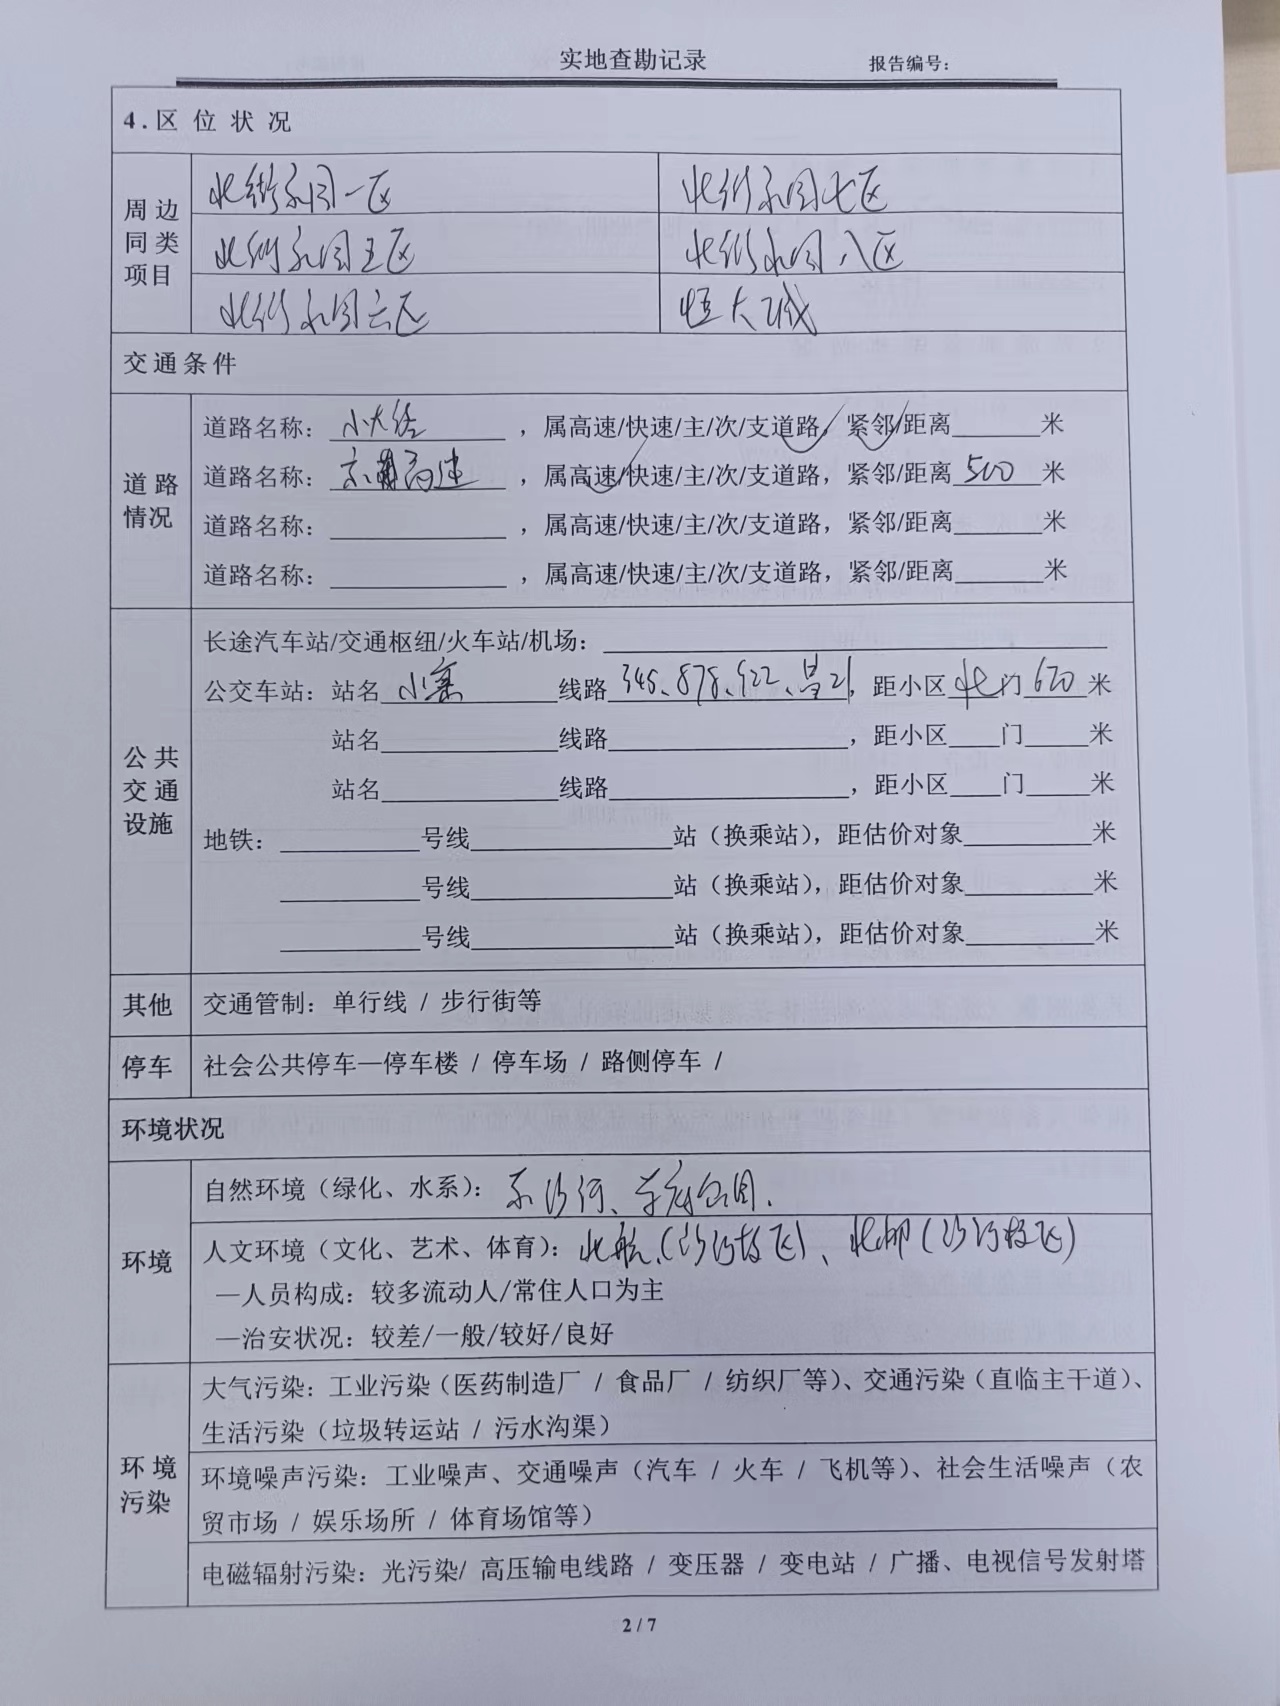 实地查勘记录 报告编号:
4.区位状况
周边同类项目
北街家园一区 北街家园七区
北街家园五区 北街家园八区
北街家园六区 恒大城
交通条件
道路情况
道路名称: ,属高速/快速/主/次/支道路,紧邻/距离 米
道路名称: 高速 ,属高速/快速/主/次/支道路,紧邻/距离 500 米
道路名称: ,属高速/快速/主/次/支道路,紧邻/距离 米
道路名称: ,属高速/快速/主/次/支道路,紧邻/距离 米
公共交通设施
长途汽车站/交通枢纽/火车站/机场:
公交车站:站名 小寨 线路 345、878、922、昌21,距小区 北 门 620 米
站名 线路 ,距小区 门 米
站名 线路 ,距小区 门 米
地铁: 号线 站(换乘站),距估价对象 米
号线 站(换乘站),距估价对象 米
号线 站(换乘站),距估价对象 米
其他 交通管制:单行线 / 步行街等
停车 社会公共停车—停车楼 / 停车场 / 路侧停车 /
环境状况
环境
自然环境(绿化、水系): 东沙河、 公园.
人文环境(文化、艺术、体育): 北航(沙河校区)、北邮(沙河校区)
—人员构成:较多流动人/常住人口为主
—治安状况:较差/一般/较好/良好
环境污染
大气污染:工业污染(医药制造厂 / 食品厂 / 纺织厂等)、交通污染(直临主干道)、
生活污染(垃圾转运站 / 污水沟渠)
环境噪声污染:工业噪声、交通噪声(汽车 / 火车 / 飞机等)、社会生活噪声(农
贸市场 / 娱乐场所 / 体育场馆等)
电磁辐射污染:光污染/ 高压输电线路 / 变压器 / 变电站 / 广播、电视信号发射塔
2 / 7